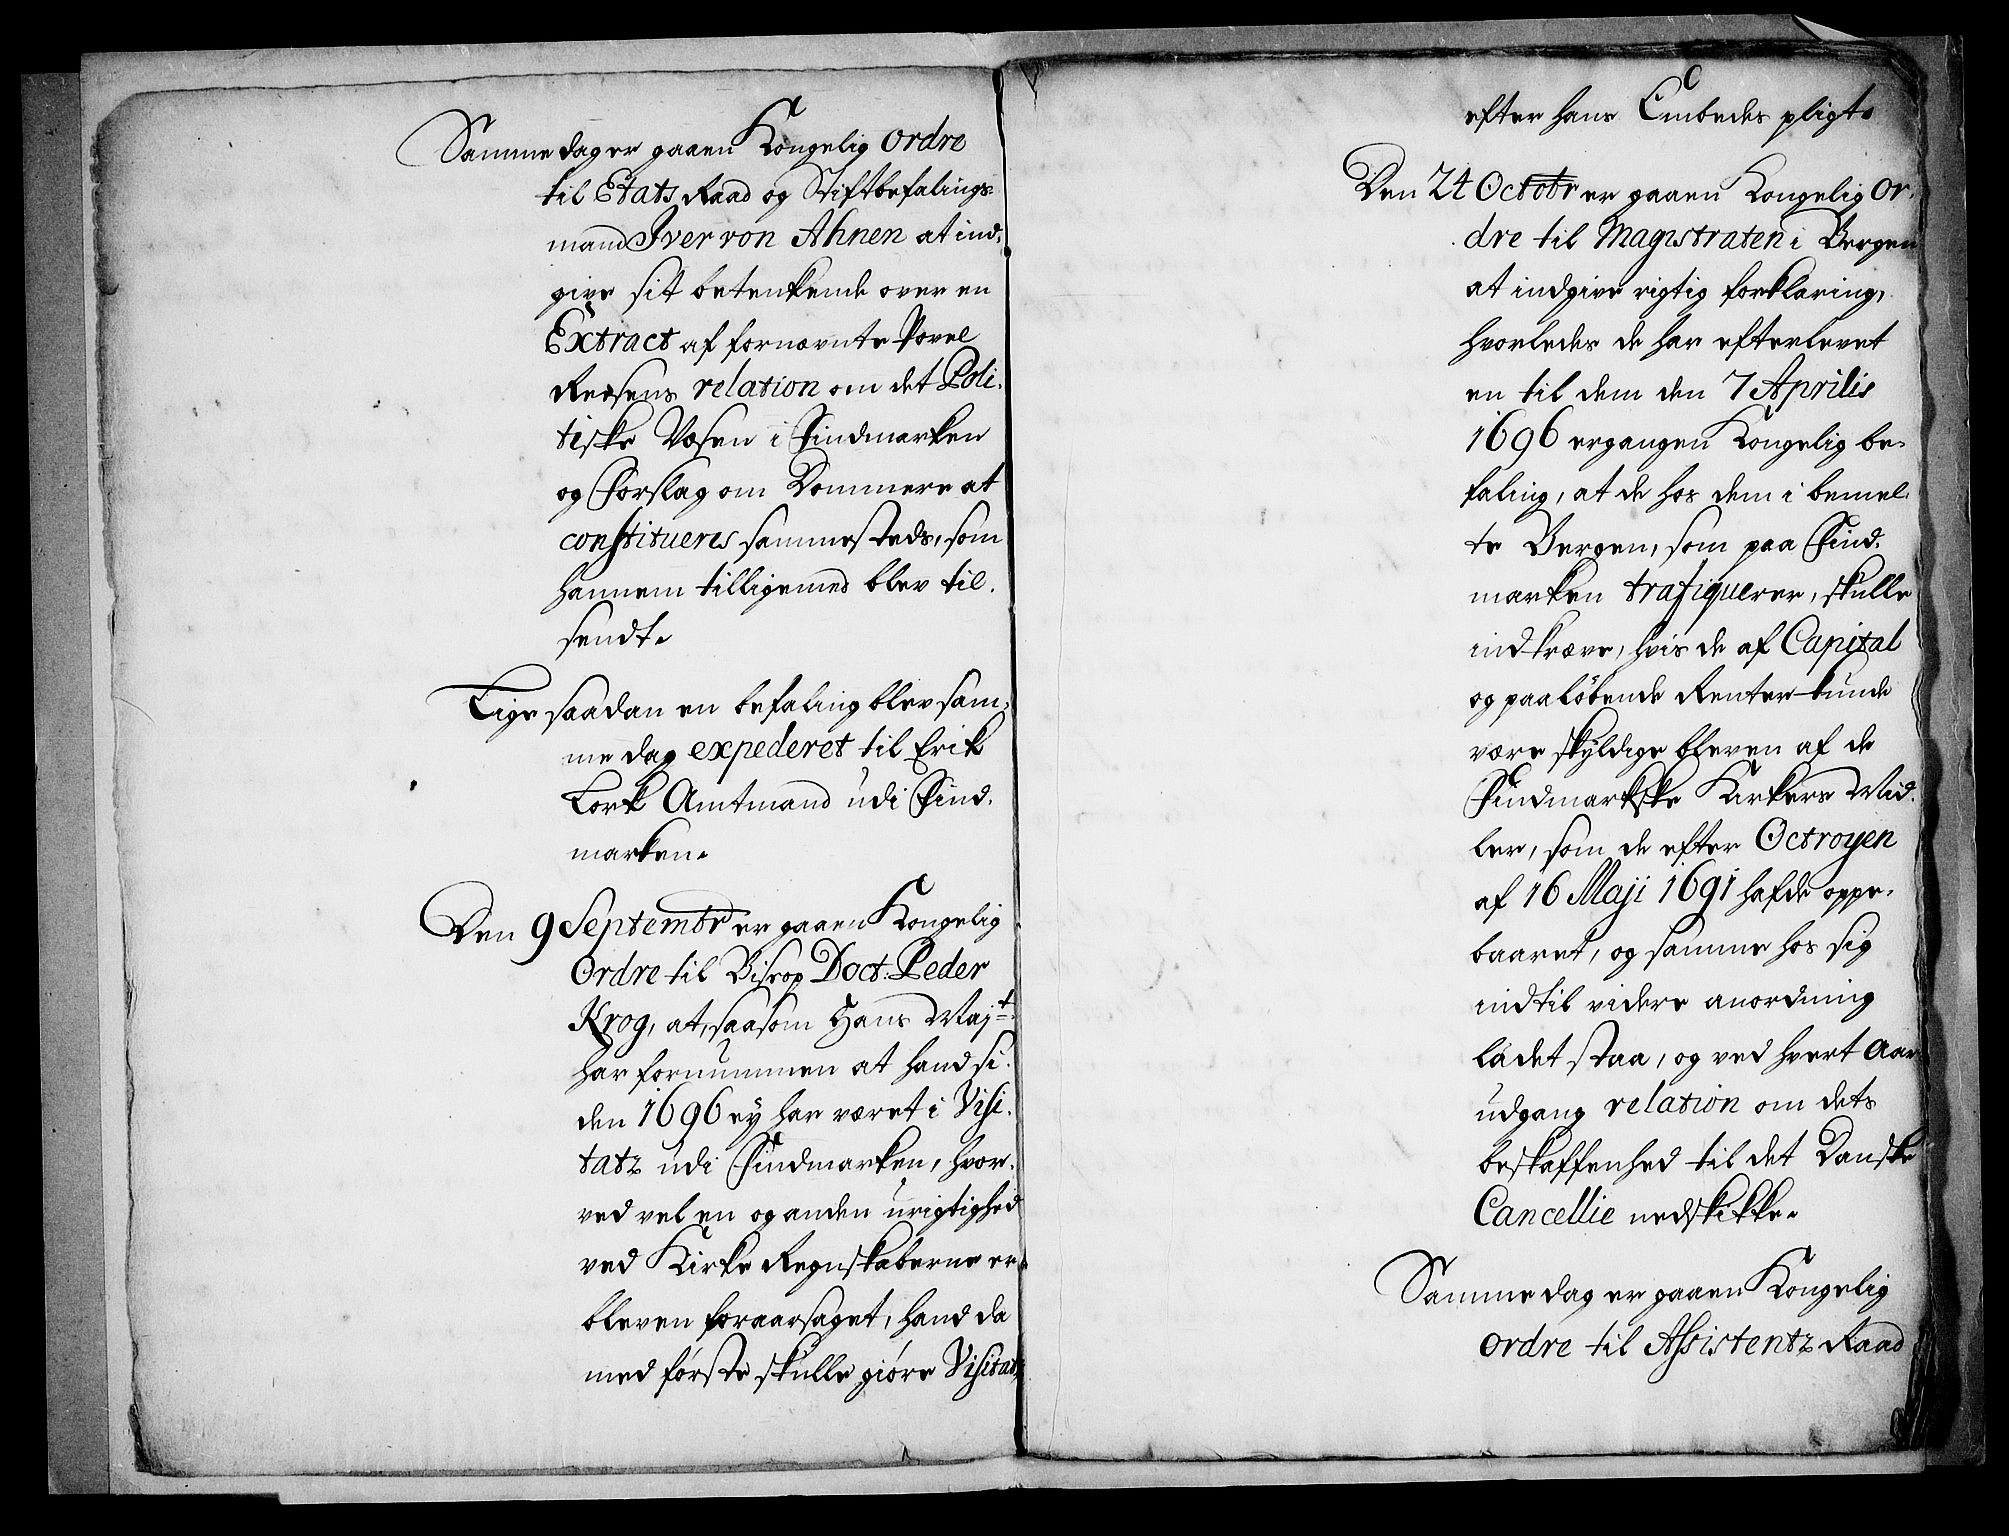 Samme dag er gaaen Kongelig Ordre
til Etats Raad og Stiftbefalings-
mand Iver von Ahnen at ind-
give sit betenkende over en
Extract af fornævnte Povel
Resens relation om det Poli-
tiske Væsen i Findmarken
og Forslag om Dommere at
constitueres sammesteds, som
hannem tilligemed blev til-
sendt.
Lige saadan en befaling blev sam-
me dag expederet til Erik
Lork Amtmand udi Find-
marken.
Den 9 Septembr er gaaen Kongelig
Ordre til Biscop Doct: Peder
Krog, at, saasom Hans Majt:
har fornummen at hand si-
den 1696 ey har været i Visi-
tatz udi Findmarken, hvor-
ved vel en og anden urigtighed
ved Kirke Regnskaberne er
bleven foraarsaget, hand da
med første skulle giøre Visitatz
efter hans Embedes pligt.
Den 24 Octobr er gaaen Kongelig Or-
dre til Magistraten i Bergen
at indgive rigtig forklaring,
hvorledes de har efterlevet
en til dem den 7 Aprilis
1696 ergangen Kongelig be-
faling, at de hos dem i bemel-
te Bergen, som paa Find-
marken trafiquerer, skulle
indkræve, hvis de af Capital
og paaløbende Renter kunde
være skyldige bleven af de
Findmarkske Kirkers Mid-
ler, som de efter Octroyen
af 16 Maji 1691 hafde oppe-
baaret, og samme hos sig
indtil videre anordning
ladet staa, og ved hvert Aars
udgang relation om dets
beskaffenhed til det Danske
Cancellie nedskikke.
Samme dag er gaaen Kongelig
Ordre til Assistentz Raad